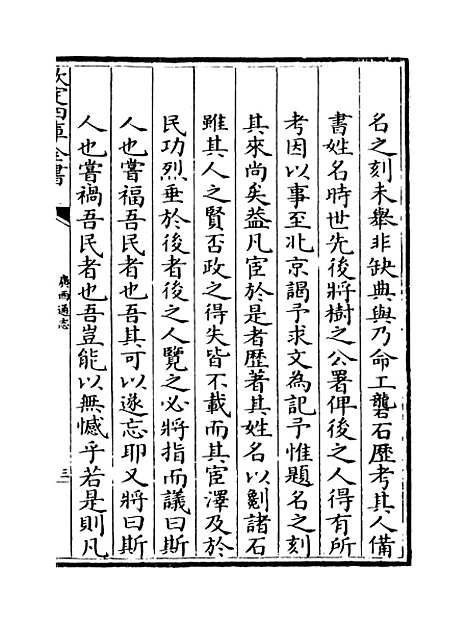 名之刻未舉非缺典與乃命工礱石歷考其人備
書姓名時世先後將樹之公署俾後之人得有所
考因以事至北京謁予求文為記予惟題名之刻
其來尚矣葢凡宦於是者歷著其姓名以劖諸石
雖其人之賢否政之得失皆不載而其宦澤及於
民功烈垂於後者後之人覽之必將指而議曰斯
人也嘗福吾民者也吾其可以遂忘耶又將曰斯
人也嘗禍吾民者也吾豈能以無憾乎若是則凡
欽定四庫全書
廣西通志
三